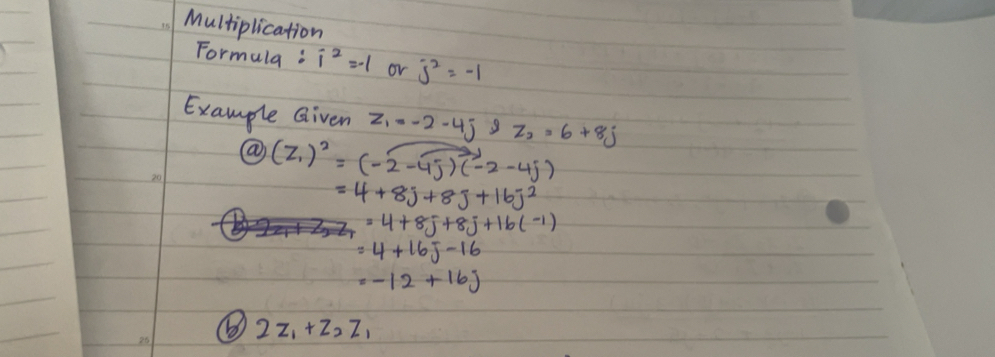 Multiplication
Formula : i² = -1 or j² = -1
Example Given Z₁ = -2 - 4j & Z₂ = 6 + 8j
ⓐ (Z₁)² = (-2 - 4j)(-2 - 4j)
= 4 + 8j + 8j + 16j²
ⓑ 2Z₁ + Z₂Z₁ = 4 + 8j + 8j + 16(-1)
= 4 + 16j - 16
= -12 + 16j
ⓑ 2Z₁ + Z₂Z₁
15
20
25